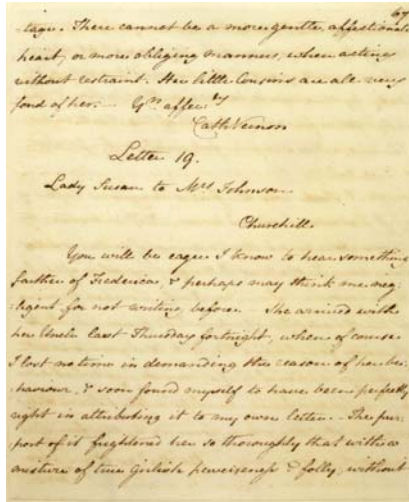 67
-tage. There cannot be a more gentle, affectionate
heart, or more obliging manners, when acting
without restraint. Her little Cousins are all very
fond of her. Yrs affecly
Cath Vernon
Letter 19.
Lady Susan to Mrs Johnson
Churchill
You will be eager I know to hear something
farther of Frederica, & perhaps may think me neg
:ligent for not writing before. She arrived with
her Uncle last Thursday fortnight, when of course
I lost no time in demanding the reason of her be:
:haviour, & soon found myself to have been perfectly
right in attributing it to my own letter. The pur:
:port of it frightened her so thoroughly that with a
mixture of true girlish perverseness & folly, without